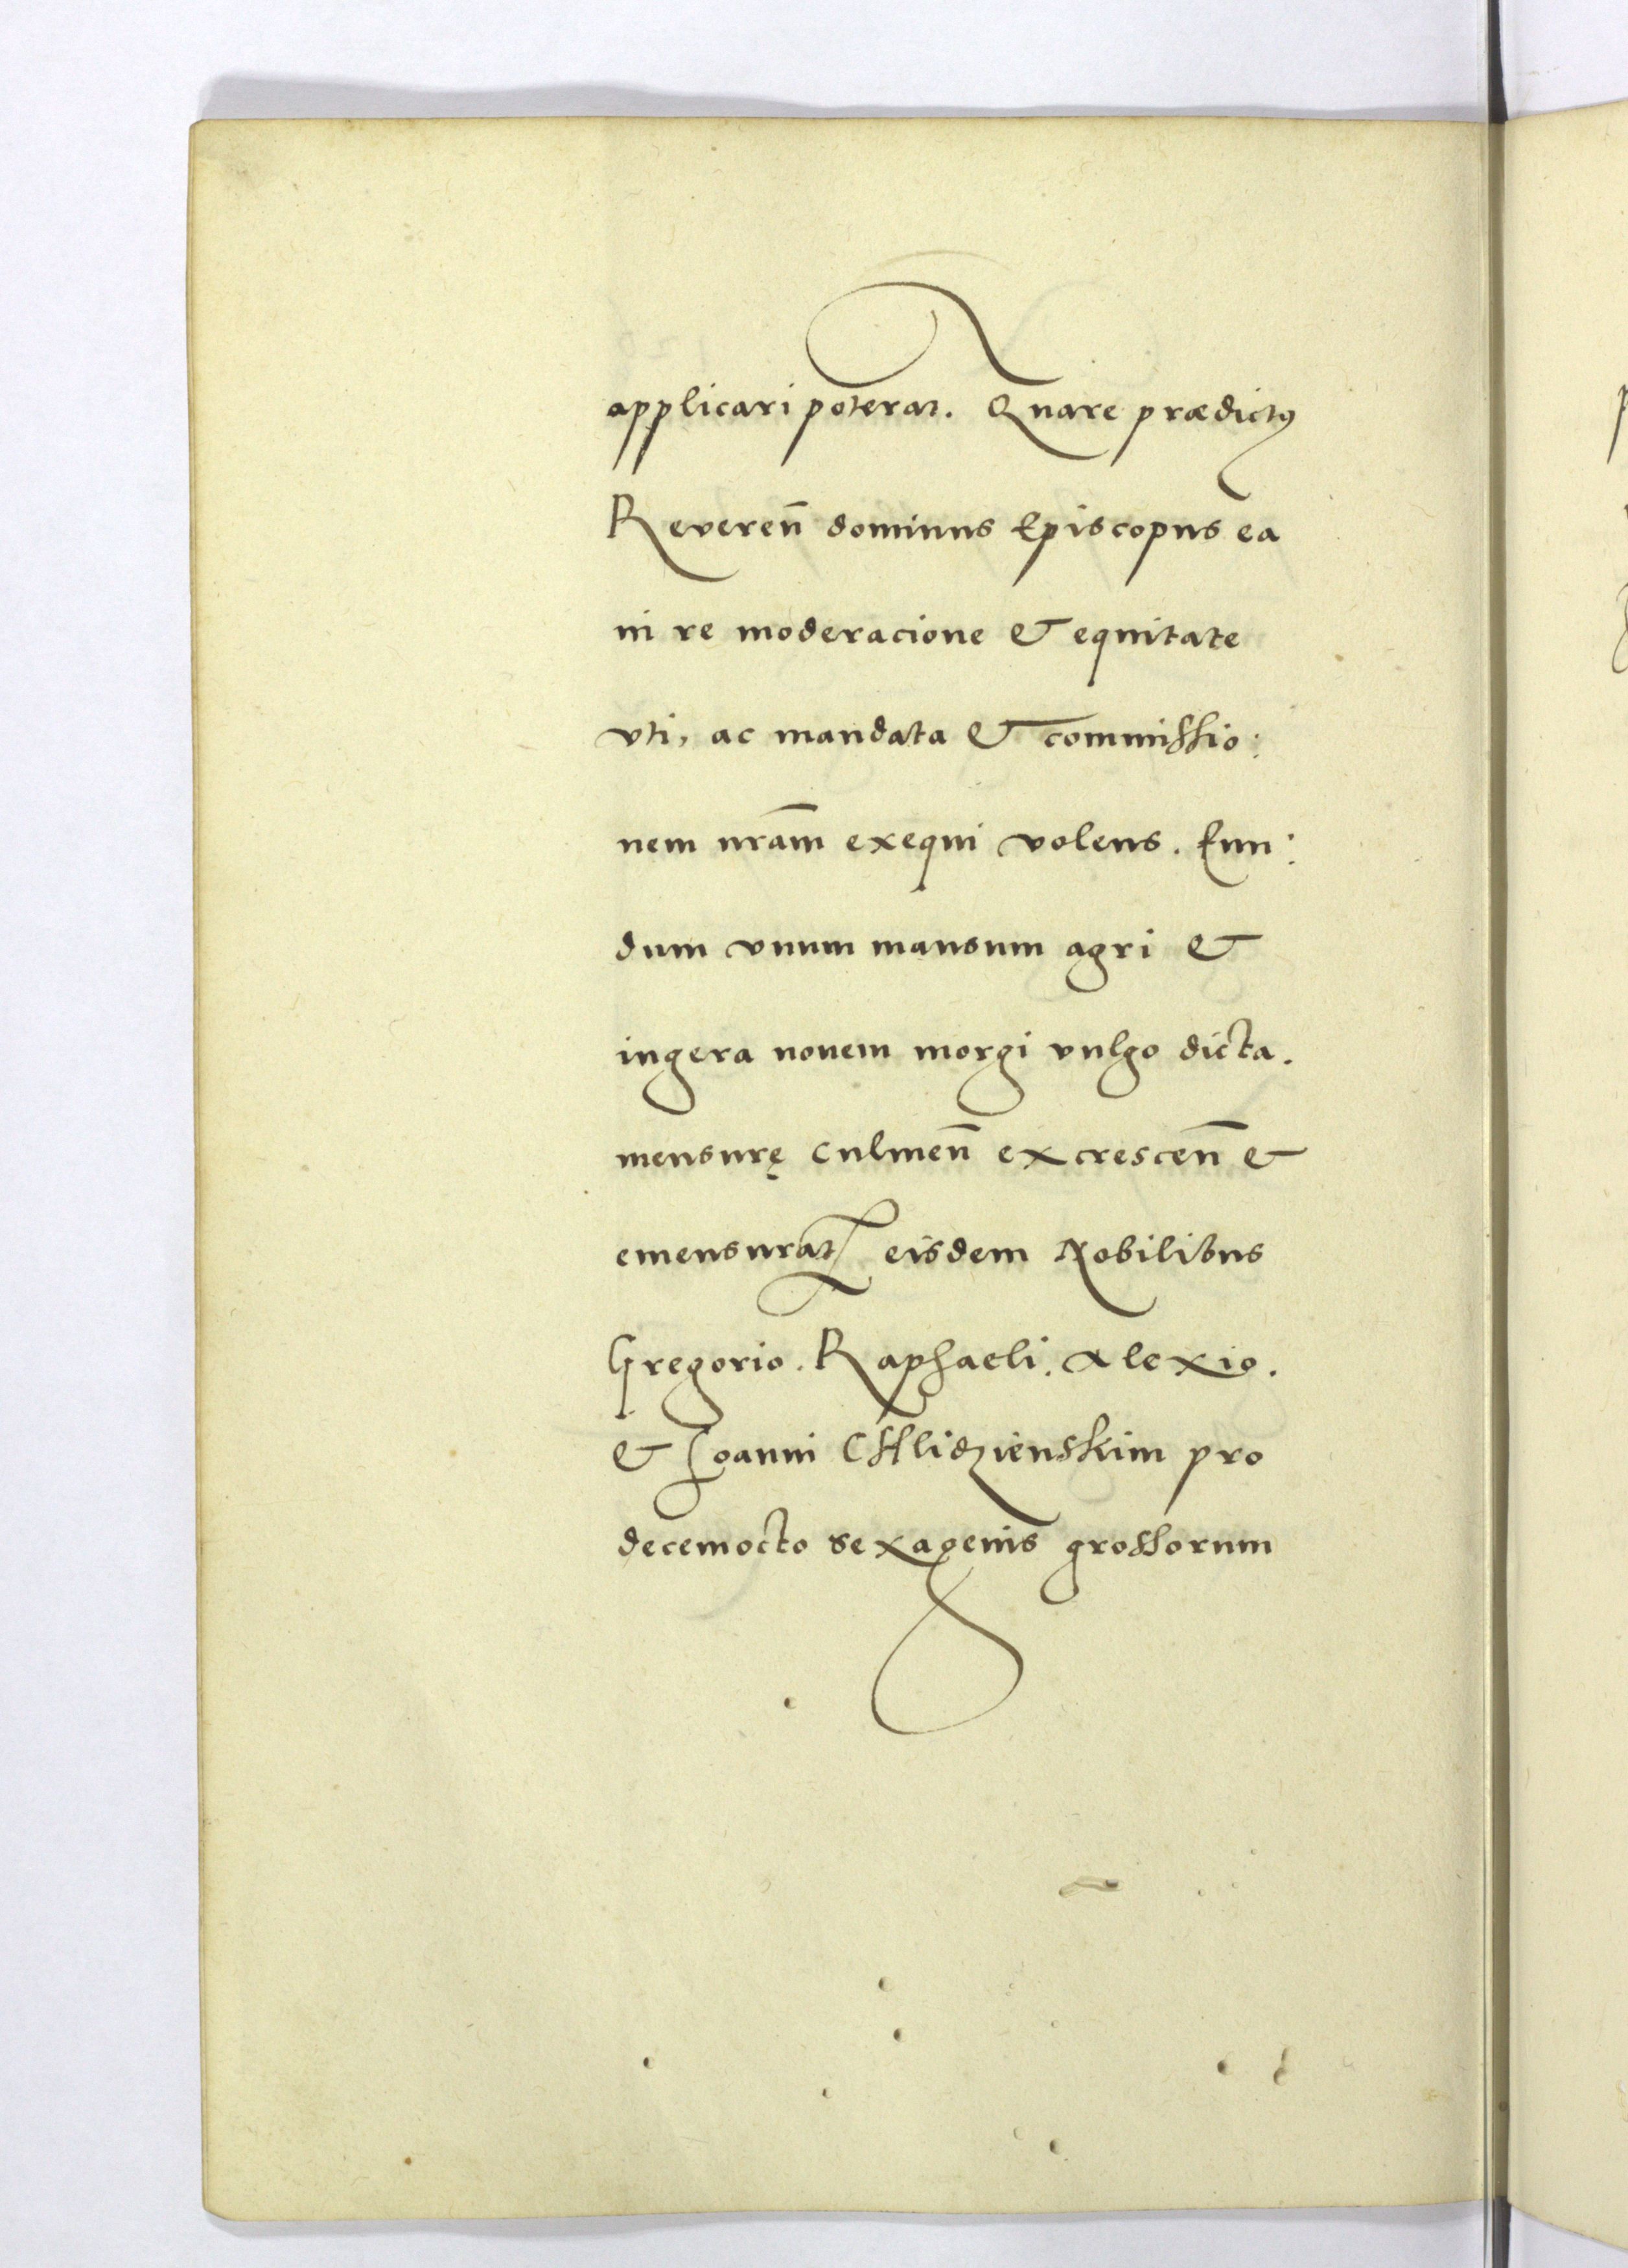 applicari poterat. Quare prædictꝯ
Reveren̄ dominus Episcopus ea
in re moderacione & equitate
vti, ac mandata & commissio:
nem nr̄am exequi volens. Eun:
dum vnum mansum agri &
iugera nouem morgi vulgo dicta.
mensurę Culmen̄ excrescen̄ &
emensurat eisdem Nobilibus
Gregorio. Raphaeli. Alexio.
& Joanni CHlidzienskim pro
decemocto sexagenis grossorum